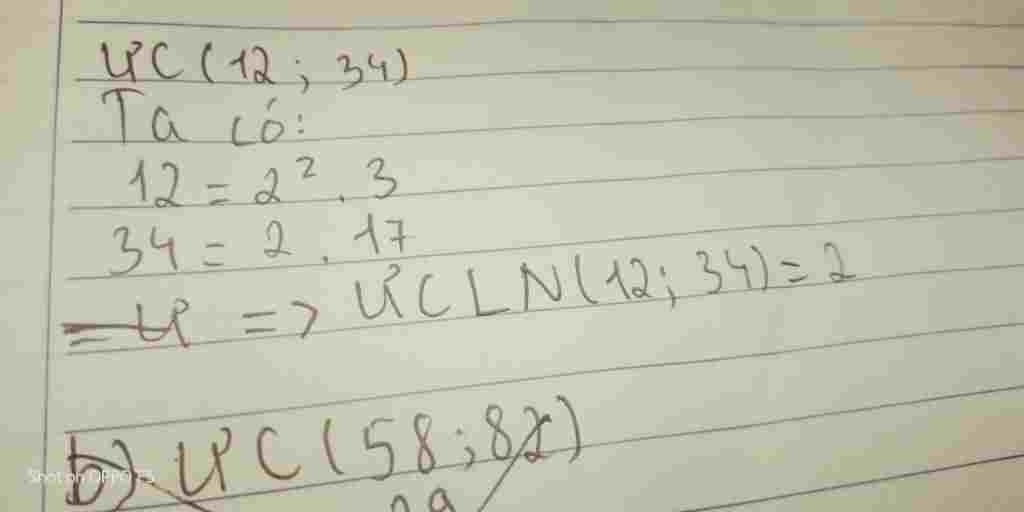 ƯC (12; 34)
Ta có:
12 = 2². 3
34 = 2. 17
=> ƯCLN(12; 34) = 2
b) ƯC (58; 82)
Shot on OPPO F5